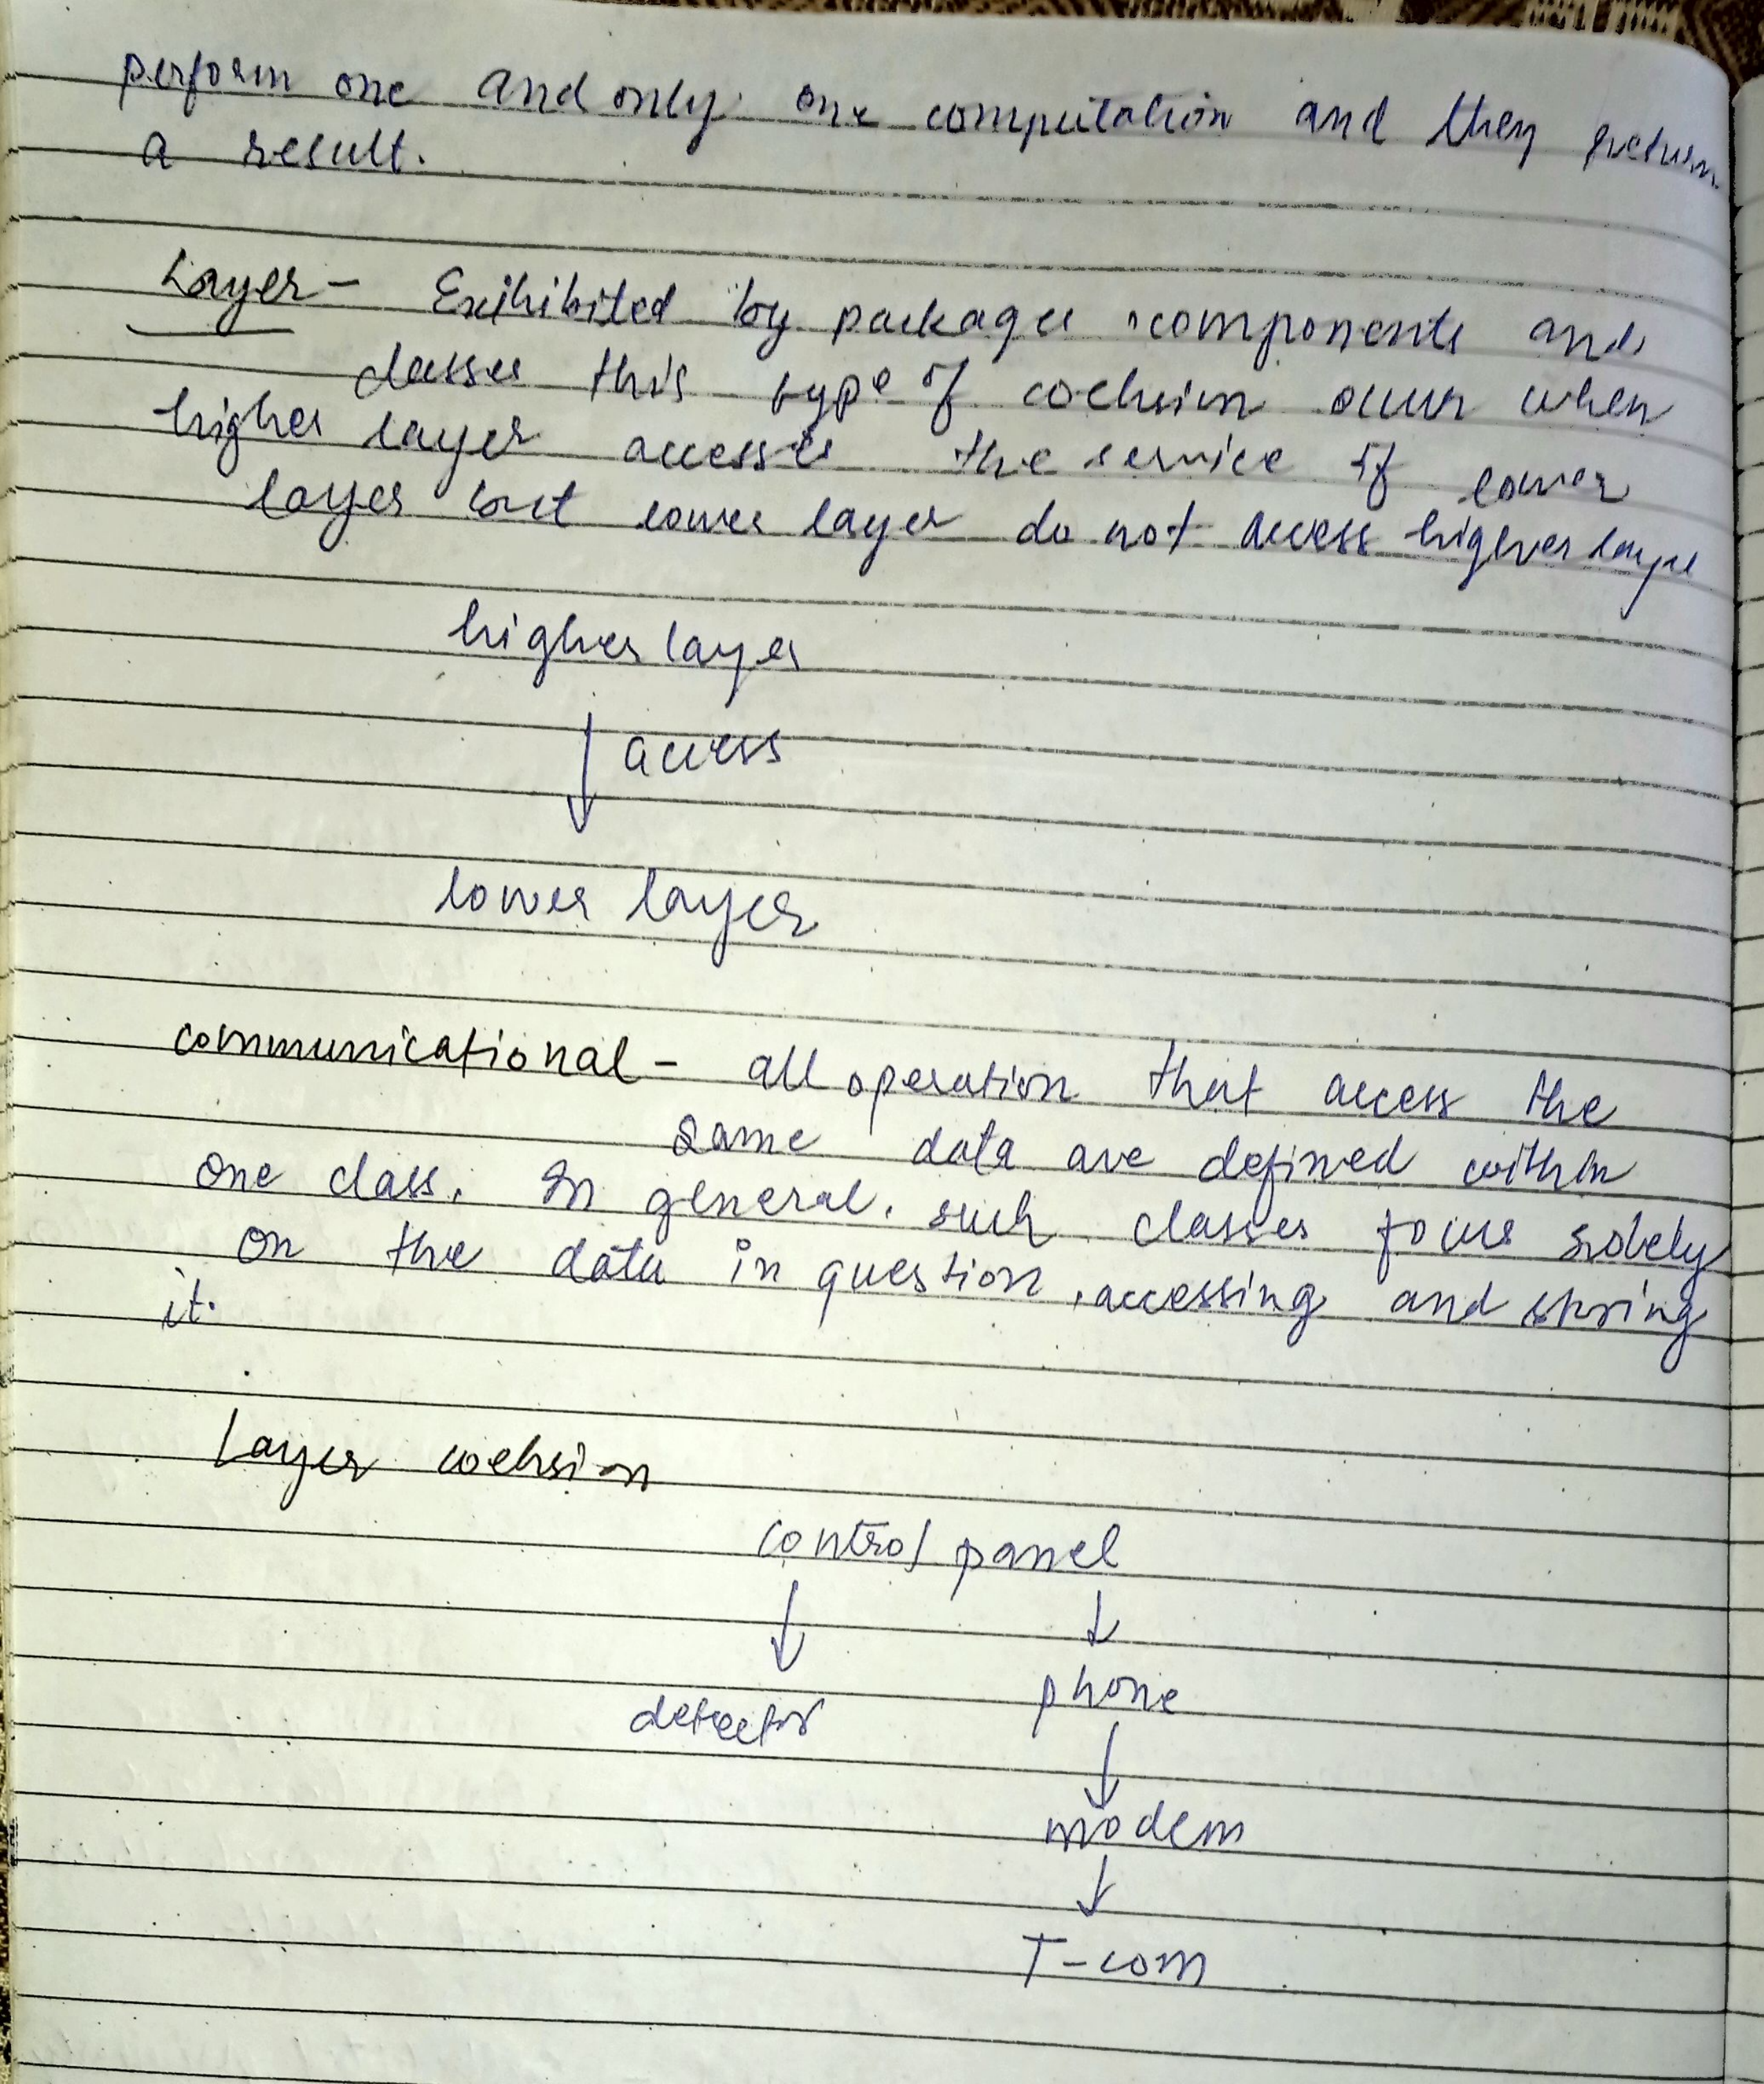 perform one and only one computation and they return
a result.
Layer - Exihibited by packages components and
classes this type of coehsion occur when
higher layer accesses the service of lower
layer but lower layer do not access higher layer
higher layer
access
lower layer
communicational - all operation that access the
same data are defined within
one class. In general, such classes focus solely
on the data in question, accessing and storing
it.
Layer coehsion
control panel
detector phone
modem
T-com